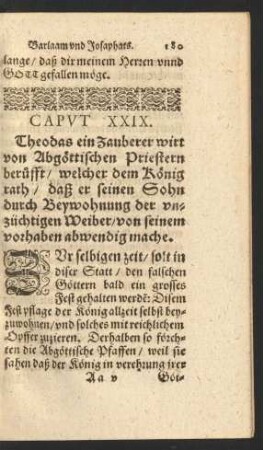 Barlaam vnd Josaphats. 180
lange / daß dir meinem Herren vnnd
GOTT gefallen möge.
CAPVT XXIX.
Theodas ein Zauberer wirt
von Abgöttischen Priestern
berüfft / welcher dem König
rath / daß er seinen Sohn
durch Beywohnung der vn-
züchtigen Weiber / von seinem
vorhaben abwendig mache.
ZUr selbigen zeit / solt in
diser Statt / den falschen
Göttern bald ein grosses
Fest gehalten werdẽ: Disem
Fest pflage der König allzeit selbst bey-
zuwohnen / vnd solches mit reichlichem
Opffer zuzieren. Derhalben so förch-
ten die Abgöttische Pfaffen / weil sie
sahen daß der König in verehrung irer
Aa v Göt-